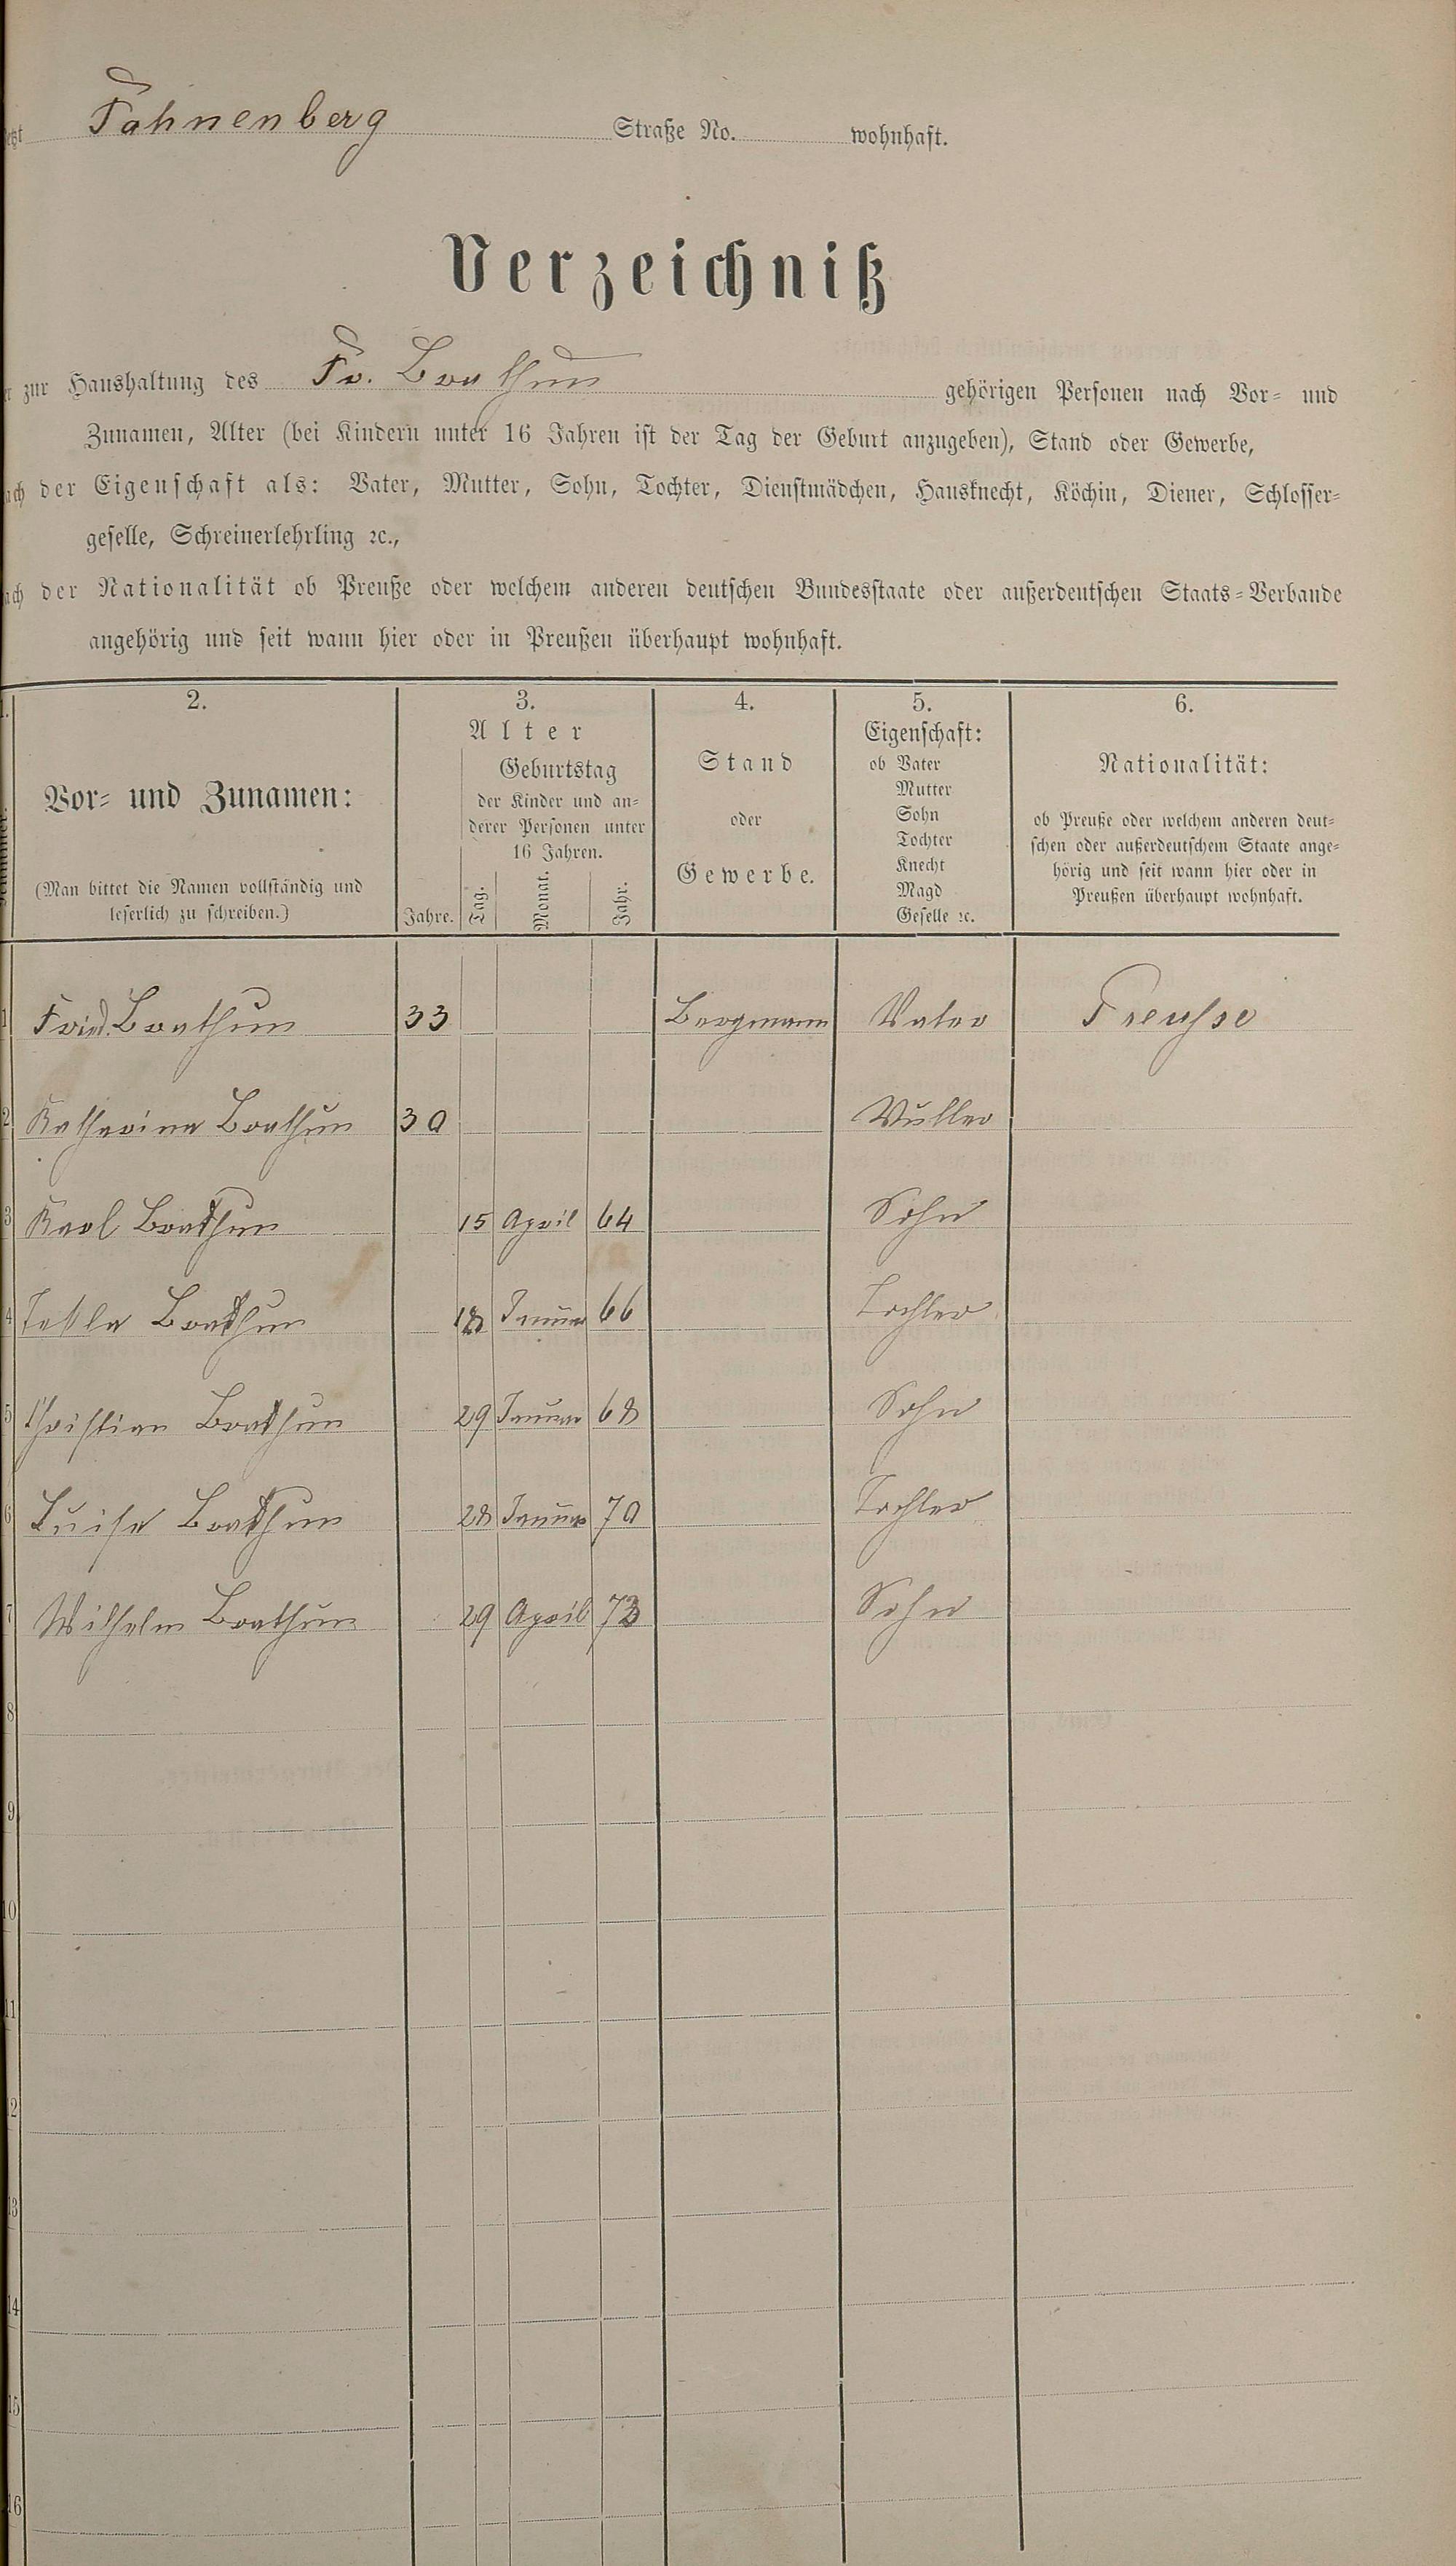 Fahnenberg Straße No. wohnhaft.
Verzeichniß
zur Haushaltung des Fr. Brathun gehörigen Personen nach Vor- und
Zunamen, Alter (bei Kindern unter 16 Jahren ist der Tag der Geburt anzugeben), Stand oder Gewerbe,
der Eigenschaft als: Vater, Mutter, Sohn, Tochter, Dienstmädchen, Hausknecht, Köchin, Diener, Schlosser-
geselle, Schreinerlehrling ꝛc.,
der Nationalität ob Preuße oder welchem anderen deutschen Bundesstaate oder außerdeutschen Staats-Verbande
angehörig und seit wann hier oder in Preußen überhaupt wohnhaft.
2. 3. 4. 5. 6.
Vor- und Zunamen:
(Man bittet die Namen vollständig und
leserlich zu schreiben.)
Alter
Geburtstag
der Kinder und an-
derer Personen unter
16 Jahren.
Jahre. Tag. Monat. Jahr.
Stand
oder
Gewerbe.
Eigenschaft:
ob Vater
Mutter
Sohn
Tochter
Knecht
Magd
Geselle ꝛc.
Nationalität:
ob Preuße oder welchem anderen deut-
schen oder außerdeutschem Staate ange-
hörig und seit wann hier oder in
Preußen überhaupt wohnhaft.
1 Fried. Brathun 33 Bergmann Vater Preusse
2 Katharina Brathun 30 Mutter
3 Karl Brathun 15 April 64 Sohn
4 Brathun 18 Januar 66 Tochter
5 Christian Brathun 29 Januar 68 Sohn
6 Luise Brathun 28 Januar 70 Tochter
7 Wilhelm Brathun 29 April 73 Sohn
8
9
10
11
12
13
14
15
16